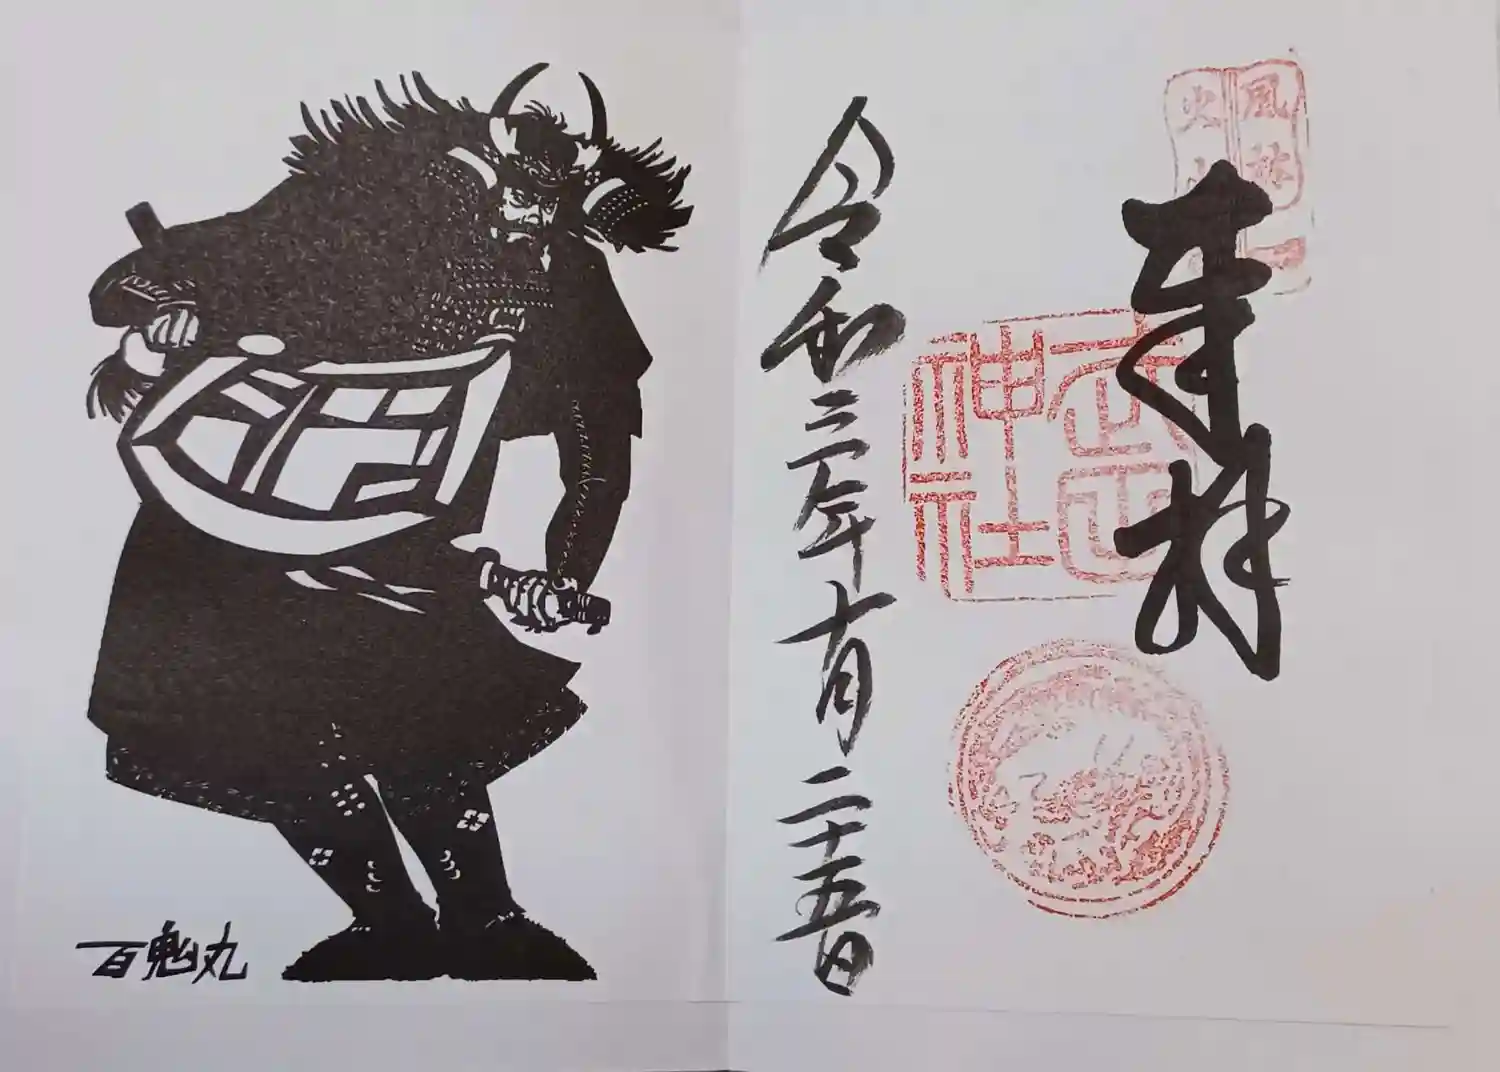 風林
火山
奉拝
武田
神社
令和三年十月二十五日
百鬼丸